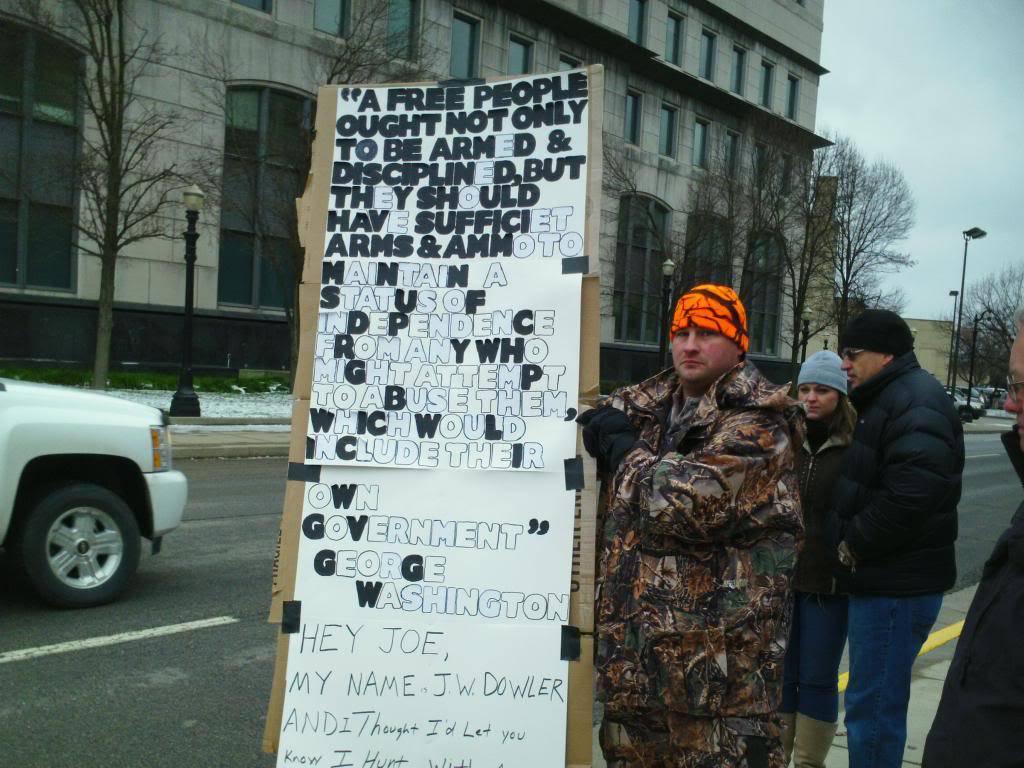 "A FREE PEOPLE
OUGHT NOT ONLY
TO BE ARMED &
DISCIPLINED, BUT
THEY SHOULD
HAVE SUFFICIET
ARMS & AMMO TO
MAINTAIN A
STATUS OF
INDEPENDENCE
FROM ANY WHO
MIGHT ATTEMPT
TO ABUSE THEM,
WHICH WOULD
INCLUDE THEIR
OWN
GOVERNMENT"
GEORGE
WASHINGTON
HEY JOE,
MY NAME IS J.W. DOWLER
AND I Thought I'd Let you
Know I Hunt With A